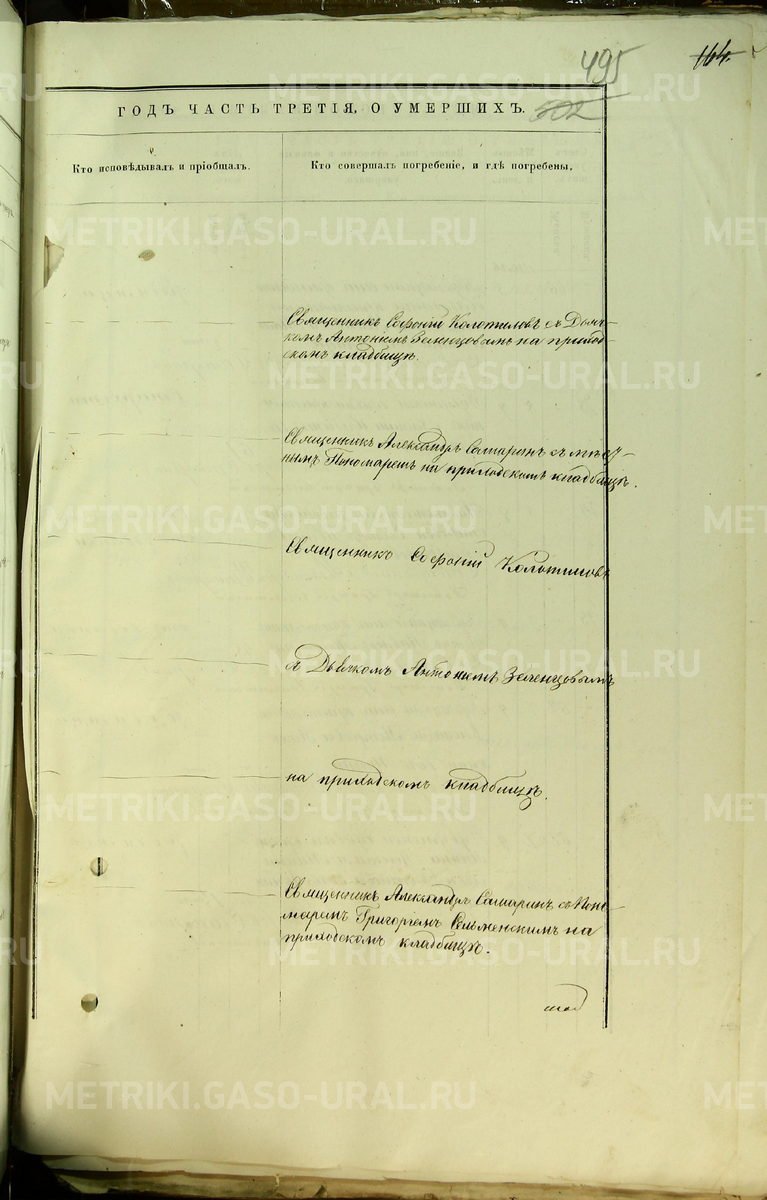 495
164
502
ГОДЪ ЧАСТЬ ТРЕТІЯ, О УМЕРШИХЪ.
Кто исповѣдывалъ и пріобщалъ.
Кто совершалъ погребеніе, и гдѣ погребены.
Священникъ Софоній Колотиловъ съ Дьяч-
комъ Антониномъ Зеленцовымъ на приход-
скомъ кладбищѣ.
Священникъ Александръ Самаринъ съ
нымъ Пономаремъ на приходскомъ кладбищѣ.
Священникъ Софоній Колотиловъ
съ Дьячкомъ Антониномъ Зеленцовымъ
на приходскомъ кладбищѣ.
Священникъ Александръ Самаринъ съ Поно-
маремъ Григоріемъ на
приходскомъ кладбищѣ.
METRIKI.GASO-URAL.RU